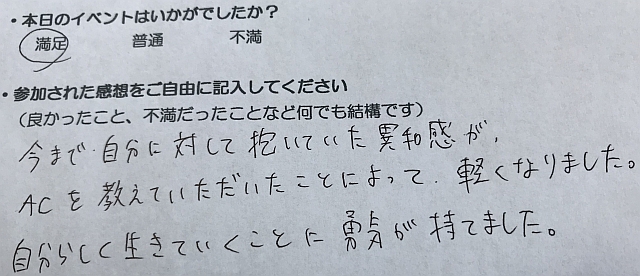 ・本日のイベントはいかがでしたか?
満足 普通 不満
・参加された感想をご自由に記入してください
(良かったこと、不満だったことなど何でも結構です)
今まで自分に対して抱いていた異和感が、
ACを教えていただいたことによって、軽くなりました。
自分らしく生きていくことに勇気が持てました。